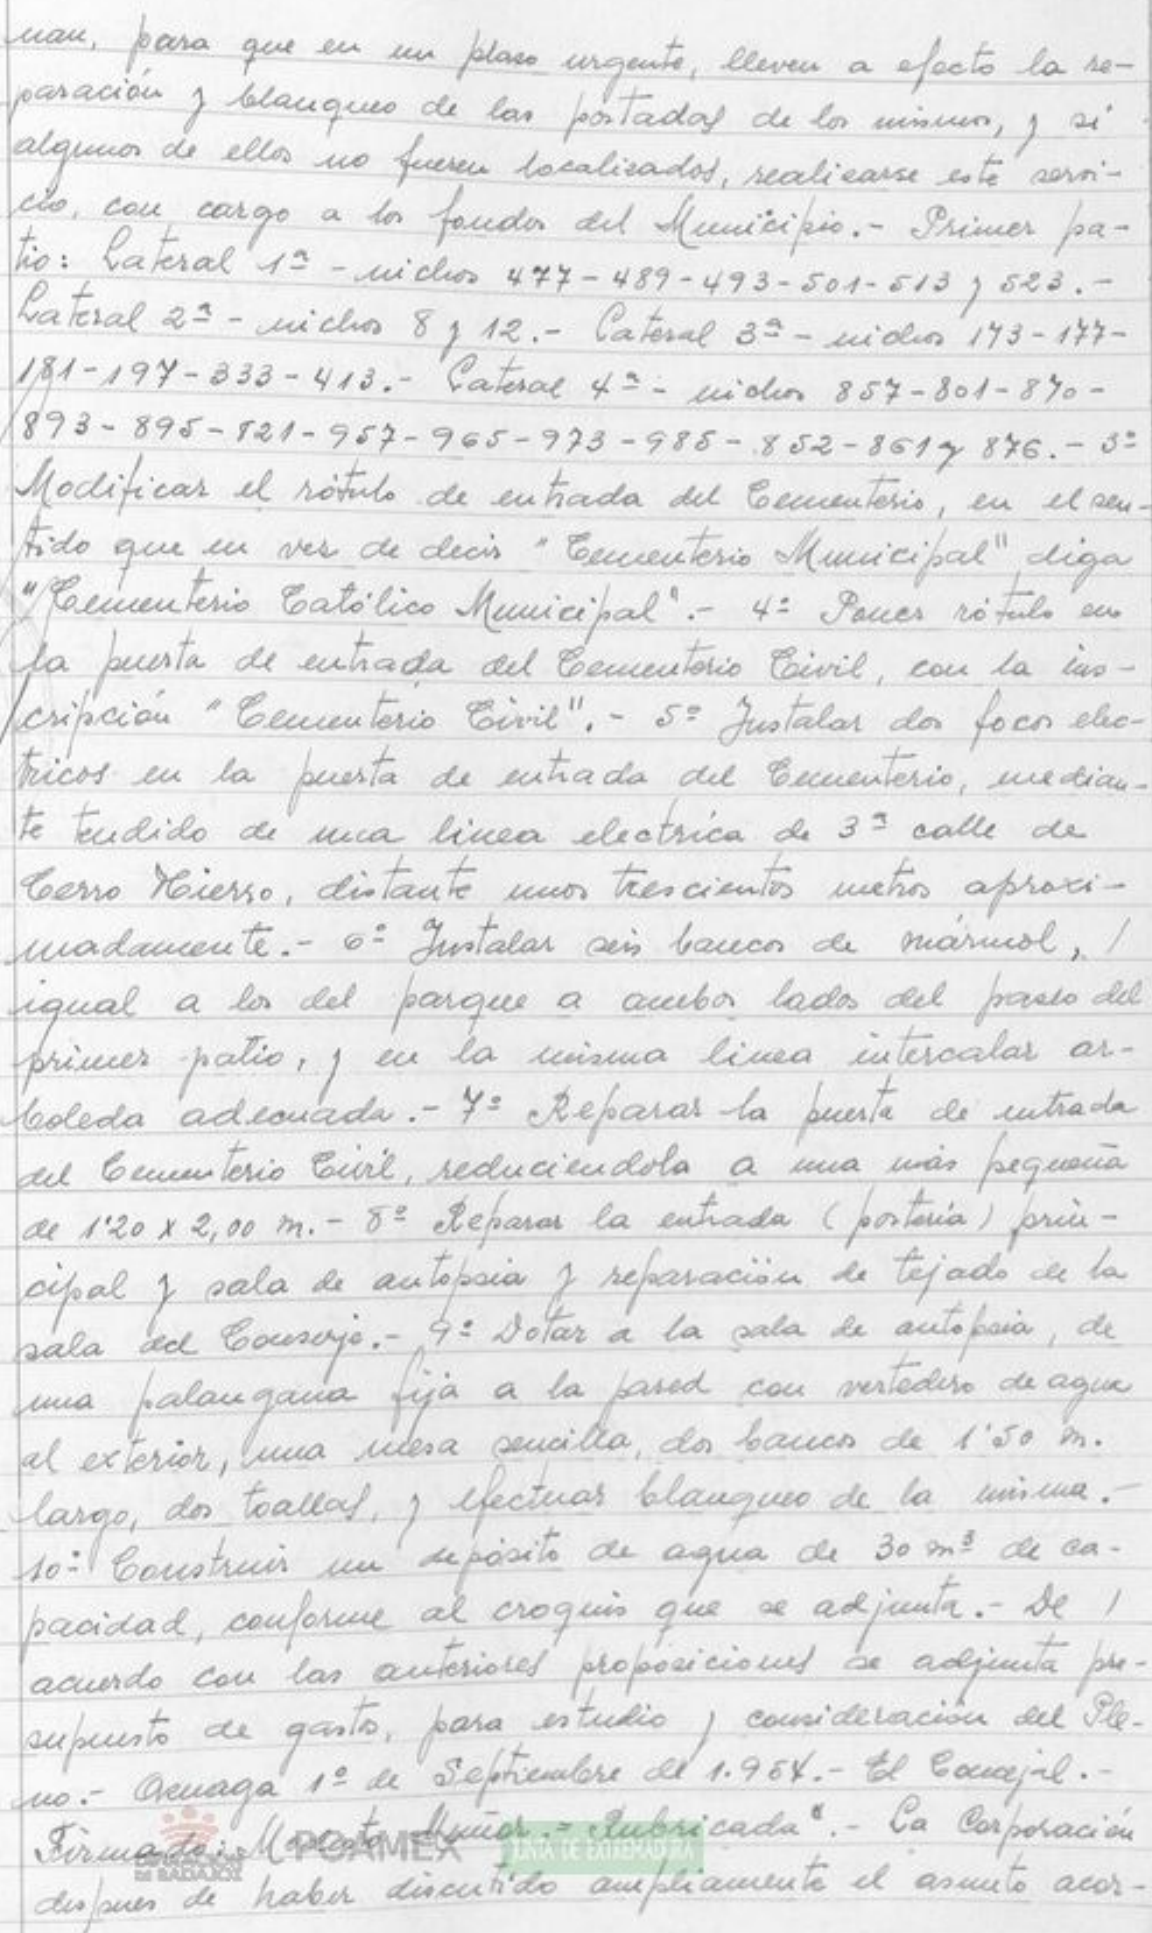 nan, para que en un plazo urgente, lleven a efecto la re-
paración y blanqueo de las portadas de los mismos, y si
algunos de ellos no fueren localizados, realizarse este servi-
cio, con cargo a los fondos del Municipio.- Primer pa-
tio: Lateral 1ª - nichos 477-489-493-501-513 y 523.-
Lateral 2ª - nichos 8 y 12.- Lateral 3ª - nichos 173-177-
181-197-333-413.- Lateral 4ª - nichos 857-801-870-
893-895-821-957-965-973-985-852-861 y 876.- 3º
Modificar el rótulo de entrada del Cementerio, en el sen-
tido que en vez de decir "Cementerio Municipal" diga
"Cementerio Católico Municipal".- 4º Poner rótulo en
la puerta de entrada del Cementerio Civil, con la ins-
cripción "Cementerio Civil".- 5º Instalar dos focos elec-
tricos en la puerta de entrada del Cementerio, median-
te tendido de una linea electrica de 3ª calle de
Cerro Hierro, distante unos trescientos metros aproxi-
madamente.- 6º Instalar seis bancos de mármol, /
igual a los del parque a ambos lados del paseo del
primer patio, y en la misma linea intercalar ar-
boleda adecuada.- 7º Reparar la puerta de entrada
del Cementerio Civil, reduciendola a una más pequeña
de 1'20 x 2,00 m.- 8º Reparar la entrada (portería) prin-
cipal y sala de autopsia y reparación de tejado de la
sala del Conserje.- 9º Dotar a la sala de autopsia, de
una palangana fija a la pared con vertedero de agua
al exterior, una mesa sencilla, dos bancos de 1'50 m.
largo, dos toallas, y efectuar blanqueo de la misma.-
10º Construir un depósito de agua de 30 m³ de ca-
pacidad, conforme al croquis que se adjunta.- De /
acuerdo con las anteriores proposiciones se adjunta pre-
supuesto de gastos, para estudio y consideración del Ple-
no.- Azuaga 1º de Septiembre de 1.954.- El Concejal.-
Firmado: Modesto Muñoz.= Rubricada".- La Corporación
despues de haber discutido ampliamente el asunto acor-
DE BADAJOZ
POAMEX
JUNTA DE EXTREMADURA